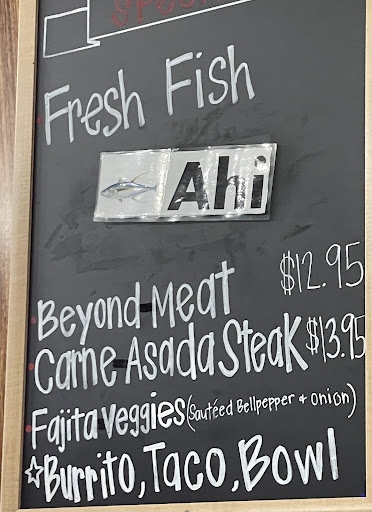 Fresh Fish
Ahi
Beyond Meat $12.95
Carne Asada Steak $13.95
Fajita Veggies (Sautéed Bellpepper + onion)
☆Burrito, Taco, Bowl